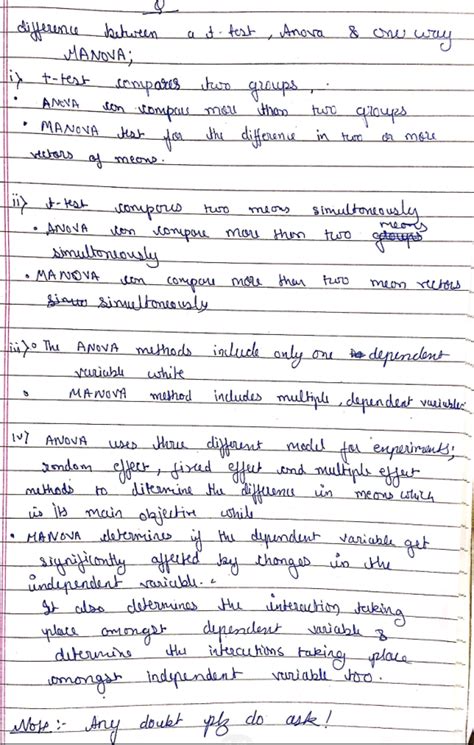 difference between a t-test, Anova & one way
MANOVA;
i) t-test compares two groups,
• ANOVA can compare more than two groups
• MANOVA test for the difference in two or more
vectors of means.
ii) t-test compares two means simultaneously
• ANOVA can compare more than two means groups
simultaneously
• MANOVA can compare more than two mean vectors
simultaneously
iii) • The ANOVA methods include only one dependent
variable while
• MANOVA method includes multiple, dependent variables
iv) ANOVA uses three different model for experiments;
random effect, fixed effect and multiple effect
methods to ditermine the difference in means which
is its main objective while
• MANOVA determines if the dependent variable get
significantly affected by changes in the
independent variable.
It also determines the interaction taking
place amongst dependent variable &
ditermine the interactions taking place
amongst independent variable too.
Note :- Any doubt plz do ask!